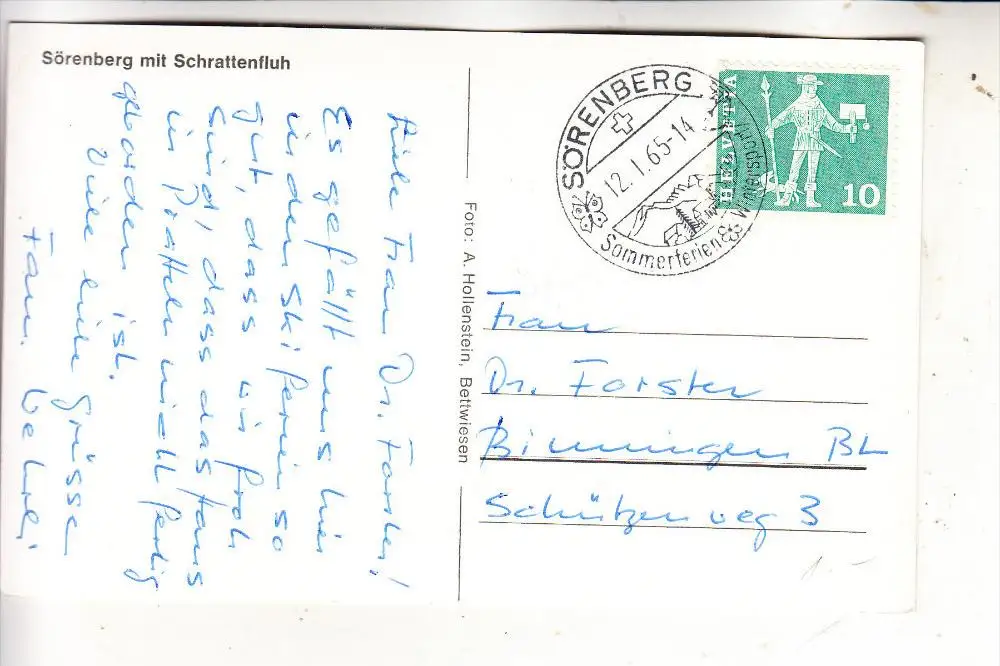 Sörenberg mit Schrattenfluh
Liebe Frau Dr. Forster!
Es gefällt uns hier
in den Skiferien so
gut, dass wir froh
sind, dass das Haus
in Pratteln nicht fertig
geworden ist.
Viele liebe Grüsse
Fam.
Foto: A. Hollenstein, Bettwiesen
SÖRENBERG
12.1.65-14
Sommerferien
Wintersport
HELVETIA
10
Frau
Dr. Forster
Binningen BL
Schützenweg 3
1.-